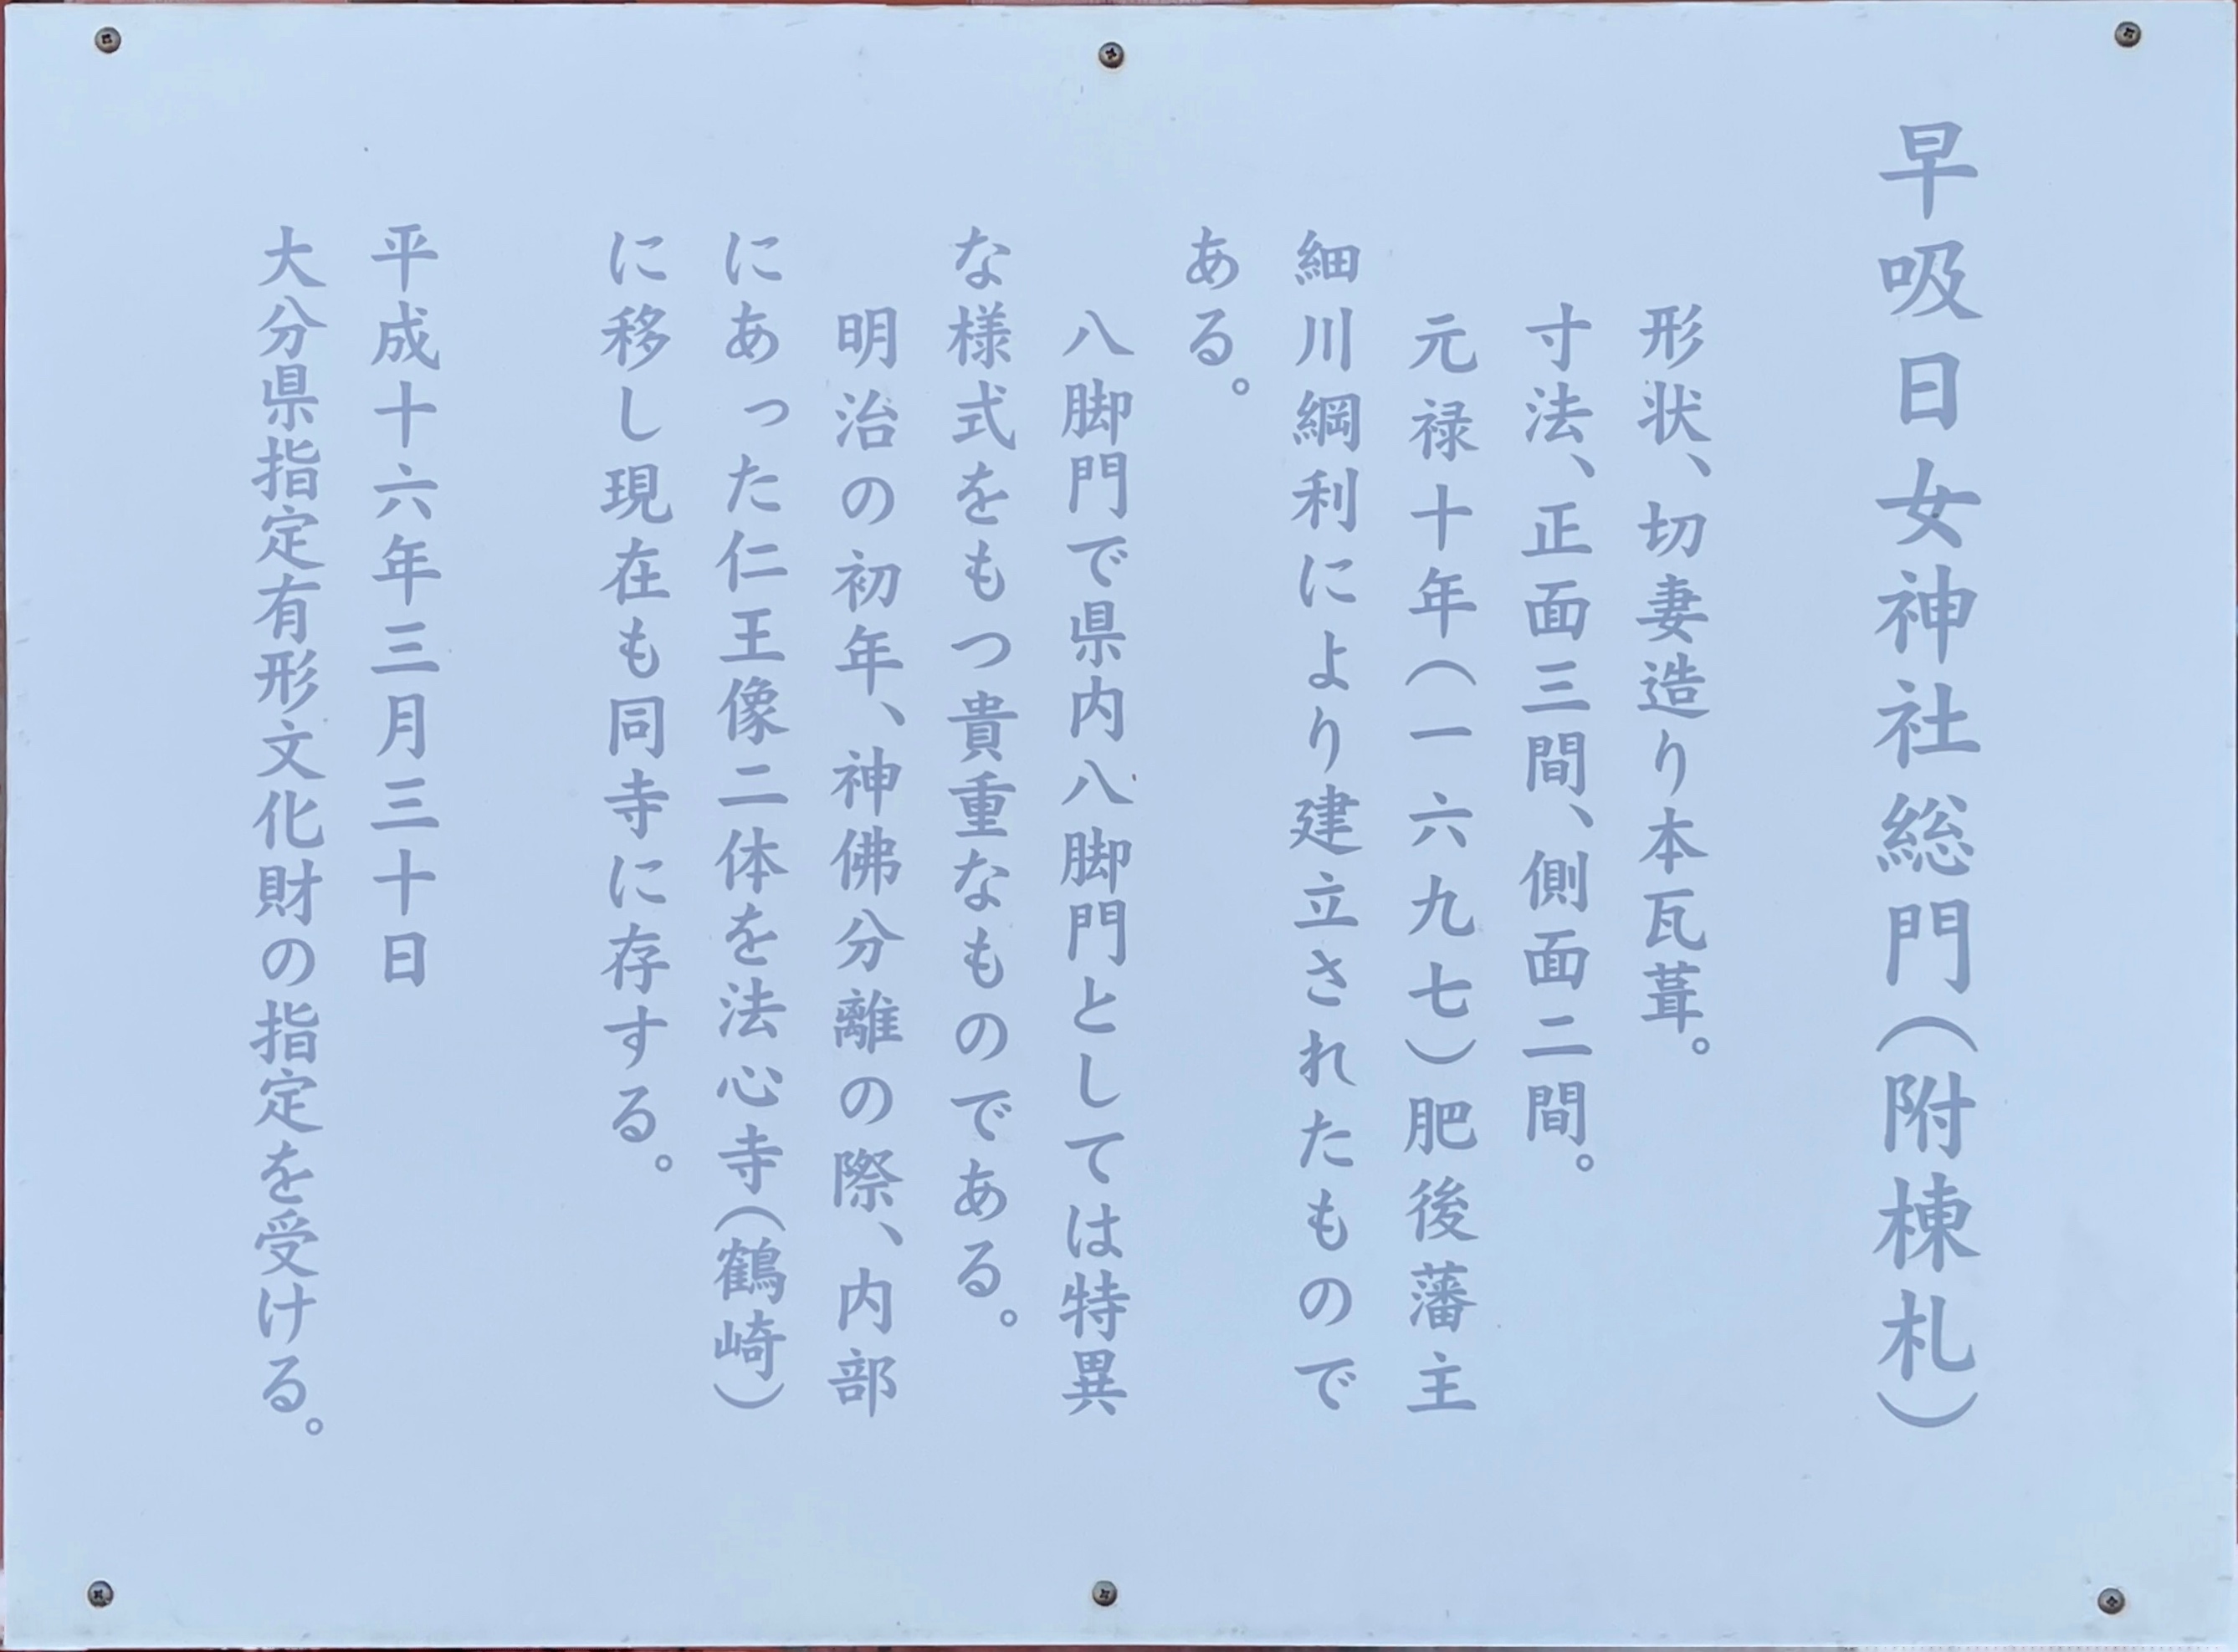 早吸日女神社総門（附棟札）
形状、切妻造り本瓦葺。
寸法、正面三間、側面二間。
元禄十年（一六九七）肥後藩主
細川綱利により建立されたもので
ある。
八脚門で県内八脚門としては特異
な様式をもつ貴重なものである。
明治の初年、神佛分離の際、内部
にあった仁王像二体を法心寺（鶴崎）
に移し現在も同寺に存する。
平成十六年三月三十日
大分県指定有形文化財の指定を受ける。